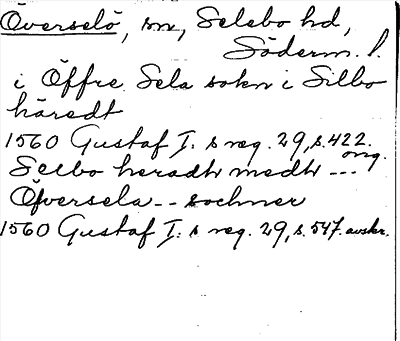 Överselö, sn, Selebo hd,
Söderm. l.
i Öffre Sela sokn i Silbo
häredt
1560 Gustaf I: s reg. 29, s. 422.
orig.
Selbo heradh medh ---
Öfversela -- sochner
1560 Gustaf I: s reg. 29, s. 547. avskr.